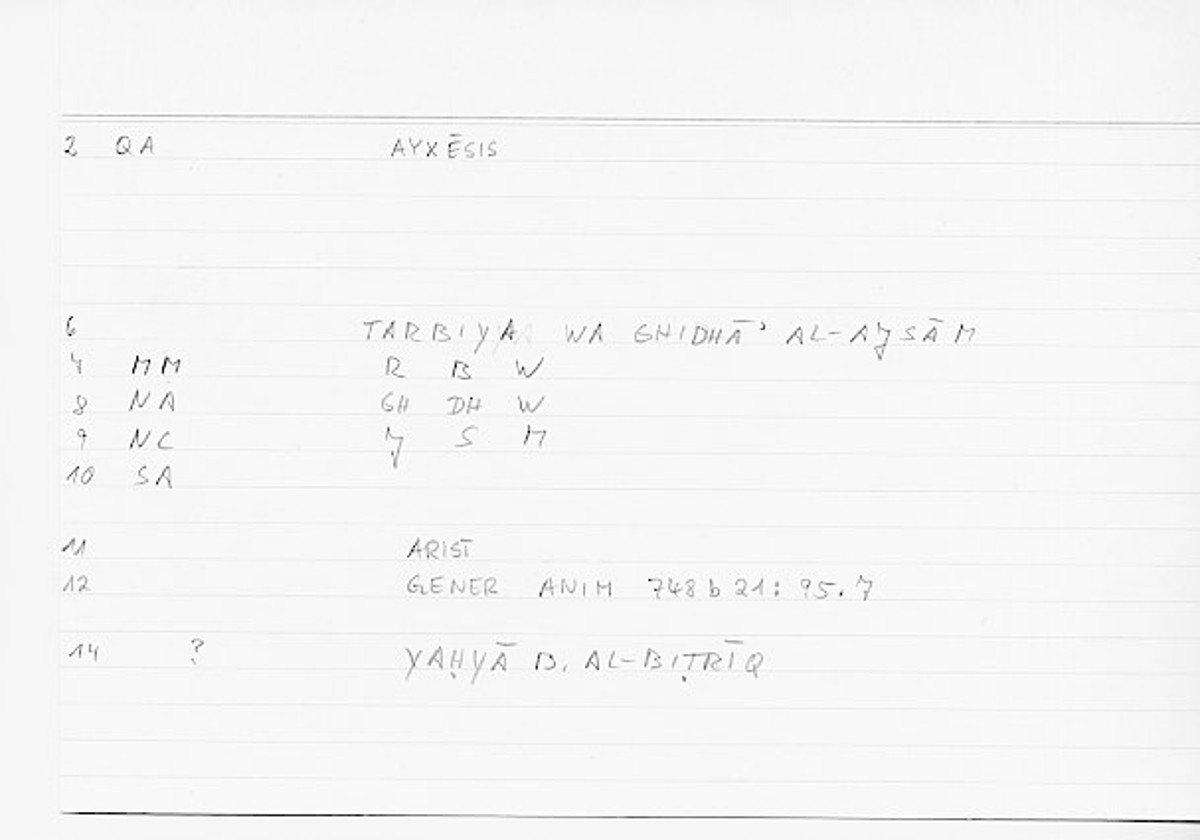 2 QA AYXĒSIS
6 TARBIYA WA GHIDHĀʾ AL-AJSĀM
7 MM R B W
8 NA GH DH W
9 NC J S M
10 SA
11 ARIST
12 GENER ANIM 748 b 21: 95.7
14 ? YAḤYĀ B. AL-BIṬRĪQ